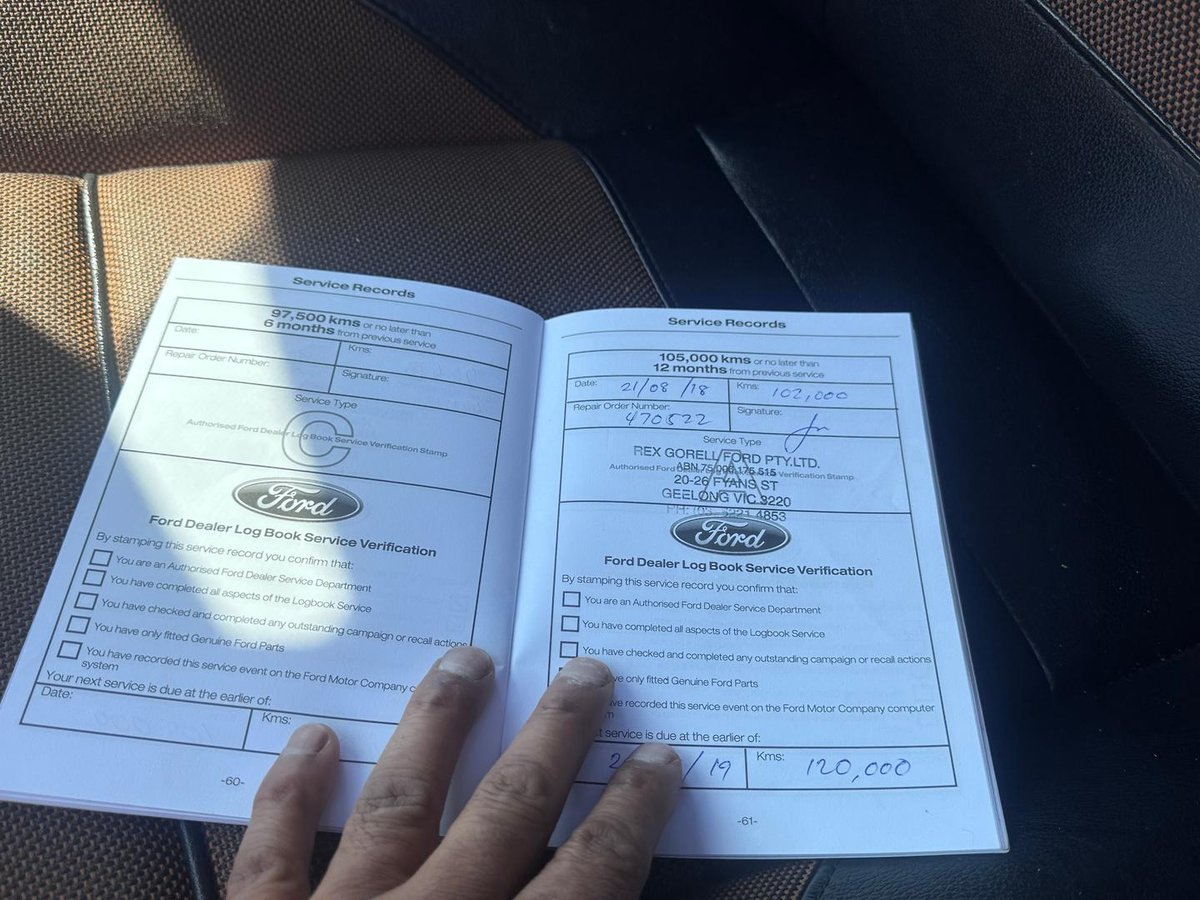 Service Records
97,500 kms or no later than
6 months from previous service
Date:
Kms:
Repair Order Number:
Signature:
Service Type
C
Authorised Ford Dealer Log Book Service Verification Stamp
Ford
Ford Dealer Log Book Service Verification
By stamping this service record you confirm that:
You are an Authorised Ford Dealer Service Department
You have completed all aspects of the Logbook Service
You have checked and completed any outstanding campaign or recall actions
You have only fitted Genuine Ford Parts
You have recorded this service event on the Ford Motor Company
system
Your next service is due at the earlier of:
Date:
Kms:
-60-
Service Records
105,000 kms or no later than
12 months from previous service
Date: 21/08/18
Kms: 102,000
Repair Order Number:
470522
Signature:
Service Type
A
REX GORELL FORD PTY.LTD.
Authorised Ford Verification Stamp
20-26 FYANS ST
GEELONG VIC 3220
4853
Ford
Ford Dealer Log Book Service Verification
By stamping this service record you confirm that:
You are an Authorised Ford Dealer Service Department
You have completed all aspects of the Logbook Service
You have checked and completed any outstanding campaign or recall actions
only fitted Genuine Ford Parts
recorded this service event on the Ford Motor Company computer
service is due at the earlier of:
/19
Kms: 120,000
-61-